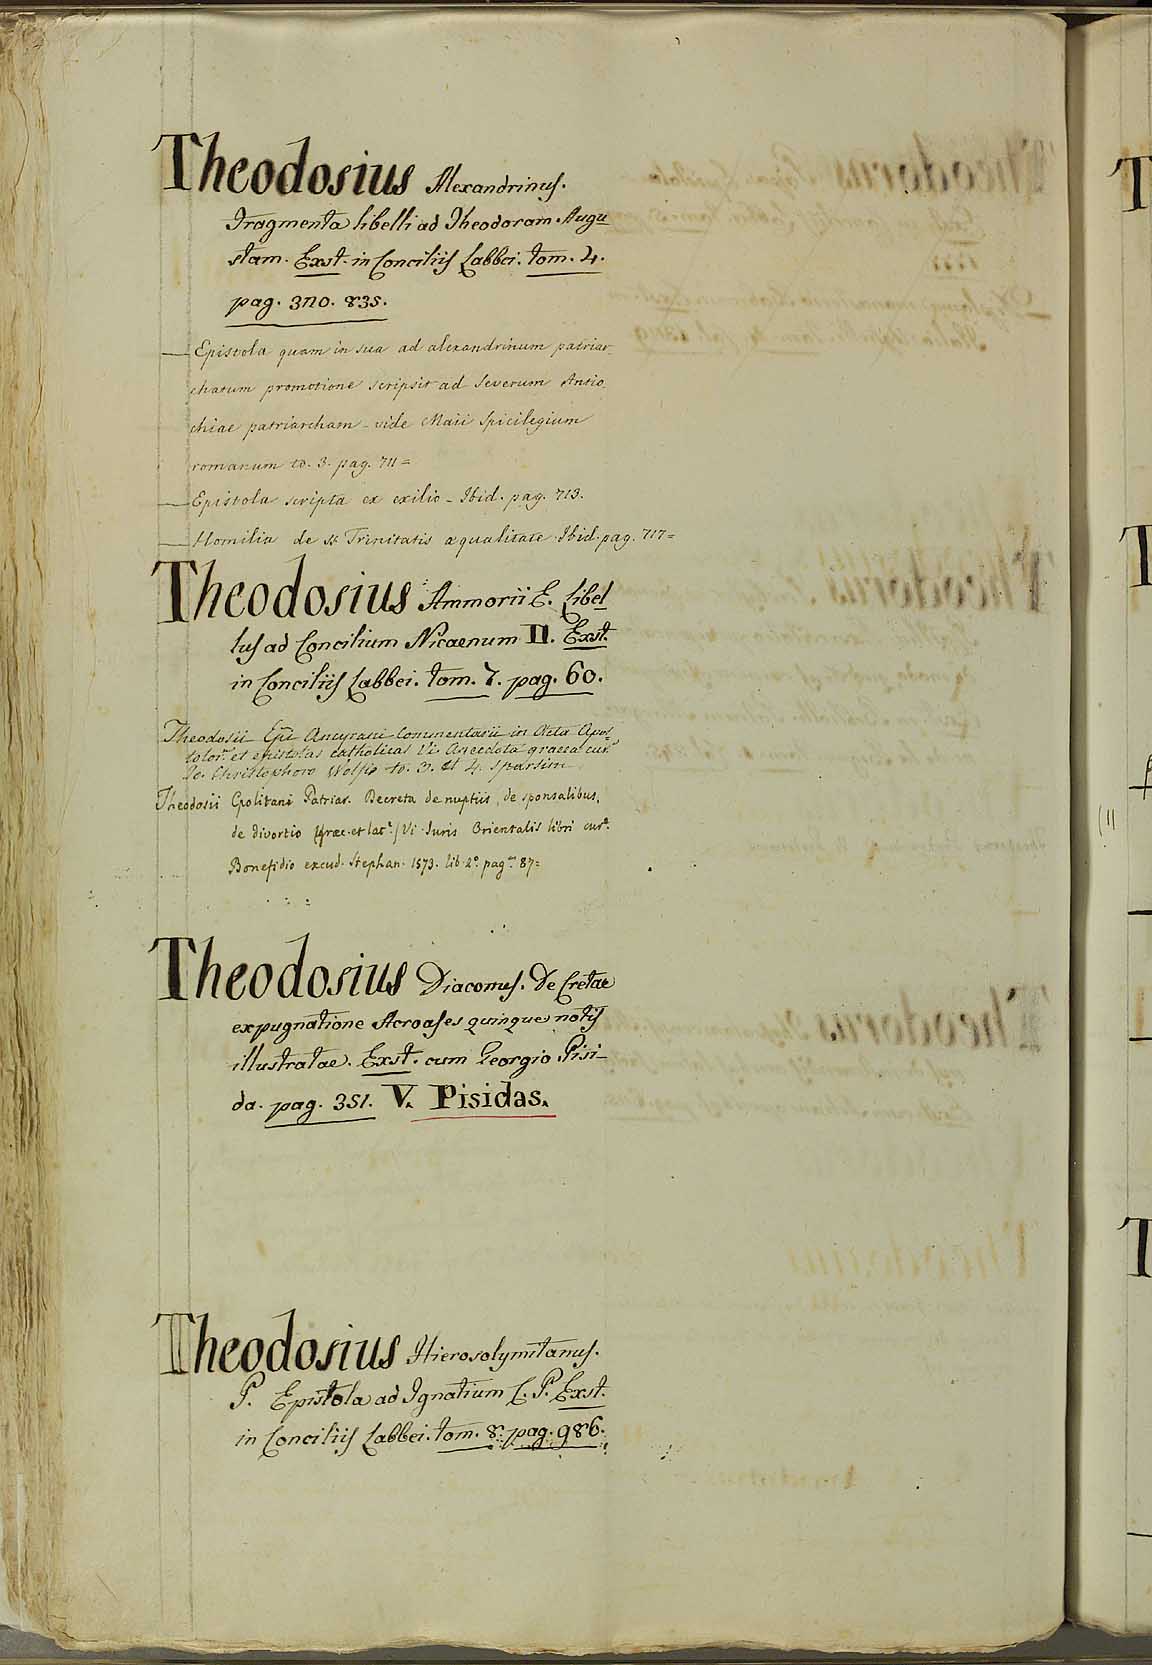 Theodosius Alexandrinus.
Fragmenta libelli ad Theodoram Augu
stam. Exst. in Conciliis Labbei. tom. 4.
pag. 370. 835.
— Epistola quam in sua ad alexandrinum patriar-
chatum promotione scripsit ad Severum Antio
chiae patriarcham - vide Maii Spicilegium
romanum to. 3. pag. 711=
— Epistola scripta ex exilio - Ibid. pag. 713.
— Homilia de SS Trinitatis aequalitate Ibid. pag. 717=
Theodosius Ammorii E. Libel
lus ad Concilium Nicaenum II. Exst.
in Conciliis Labbei. tom. 7. pag. 60.
Theodosii Epi Ancyrani Commentarii in Acta Apos=
tolor. et epistolas catholicas Vi Anecdota graeca cur
Jo. Christophoro Wolfio to. 3. et 4. sparsim
Theodosii Cpolitani Patriar. Decreta de nuptiis, de sponsalibus,
de divortio graec. et lat. / Vi Juris Orientalis libri cur.
Bonefidio excud. Stephan. 1573. lib. 2º pag. 87=
Theodosius Diaconus. De Cretae
expugnatione Acroases quinque notis
illustratae. Exst. cum Georgio Pisi-
da. pag. 351. V. Pisidas.
Theodosius Hierosolymitanus.
P. Epistola ad Ignatium C. P. Exst.
in Conciliis Labbei. tom. 8. pag. 986.